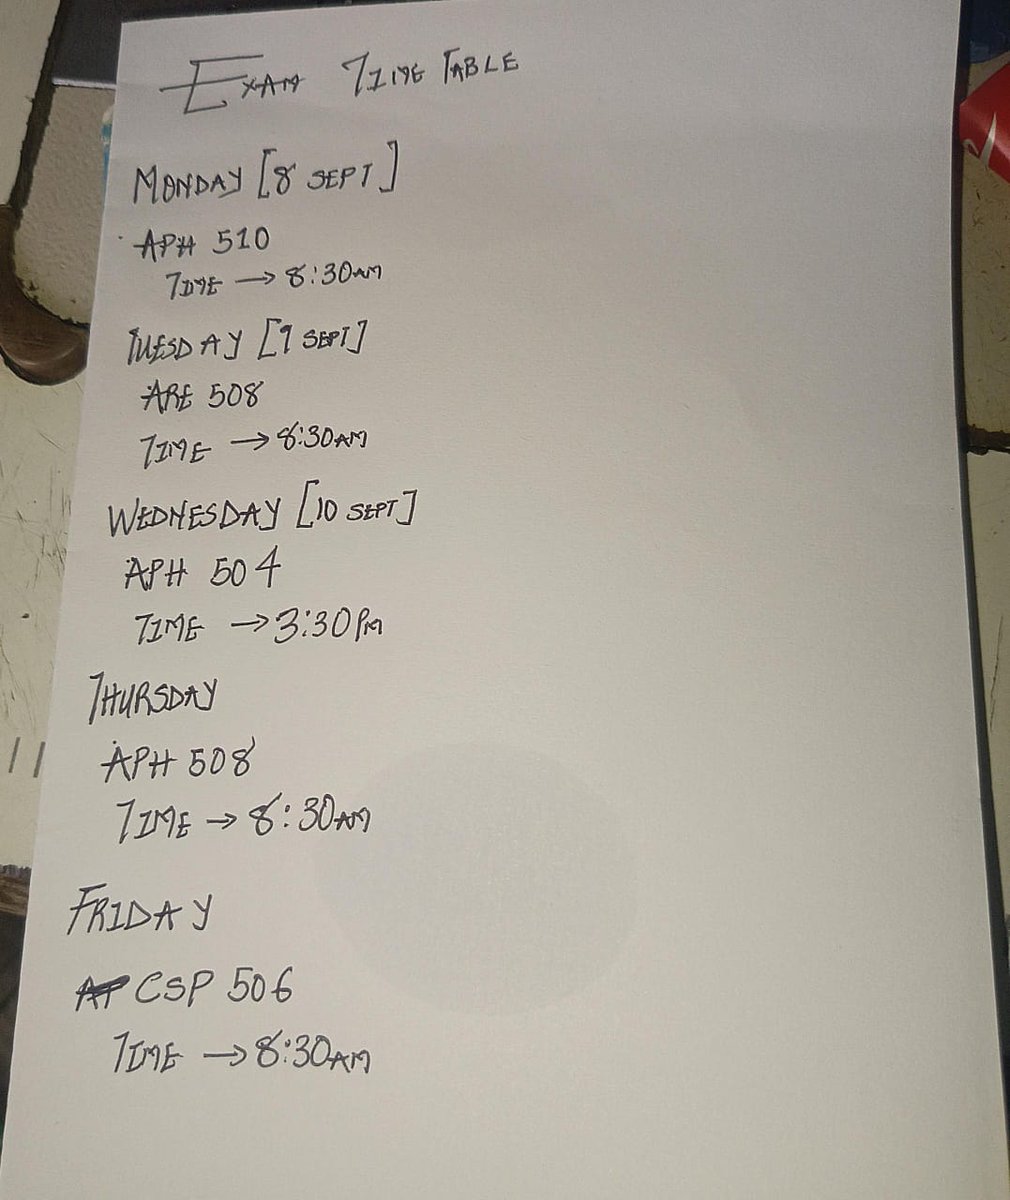 EXAM TIME TABLE
MONDAY [8 SEPT]
APH 510
TIME → 8:30AM
TUESDAY [9 SEPT]
ARE 508
TIME → 8:30AM
WEDNESDAY [10 SEPT]
APH 504
TIME → 3:30PM
THURSDAY
APH 508
TIME → 8:30AM
FRIDAY
CSP 506
TIME → 8:30AM